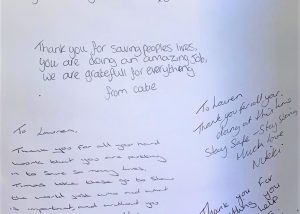 Thank you for saving peoples lives,
you are doing an amazing job,
we are gratefull for everything
from catie
To Lauren,
Thank you for all your hard
work that you are putting
in to save so many lives.
Times like these go to show
the world just who and what
is important, and without you
To Lauren
Thank you for all your
doing at this time
Stay Safe - Stay Strong
Much love
Nikki
Thank you For